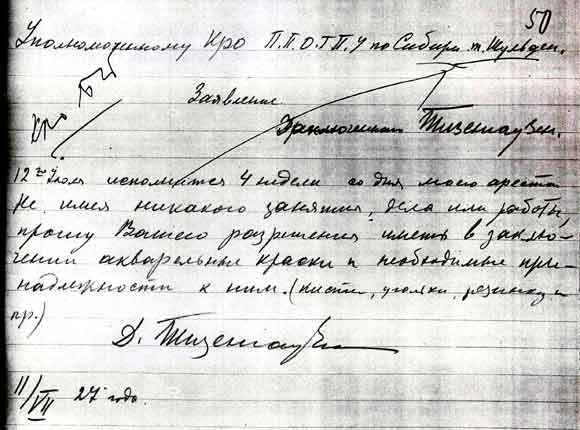 50
Уполномоченному Кро П.П.О.Г.П.У по Сибири т. Шульден.
Кро
Заявление
Заключенного Тизенгаузен.
12го Июля исполнится 4 недели со дня моего ареста
Не имея никакого занятия, дела или работы,
прошу Вашего разрешения иметь в заклю-
чении акварельные краски и необходимые при-
надлежности к ним. (кисти, угольки, резинку и
пр.)
Д. Тизенгаузен
11/VII 27 года.